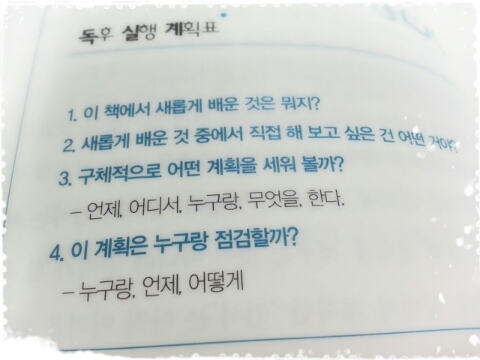 독후 실행 계획표
1. 이 책에서 새롭게 배운 것은 뭐지?
2. 새롭게 배운 것 중에서 직접 해 보고 싶은 건 어떤 거야?
3. 구체적으로 어떤 계획을 세워 볼까?
– 언제, 어디서, 누구랑, 무엇을, 한다.
4. 이 계획은 누구랑 점검할까?
– 누구랑, 언제, 어떻게